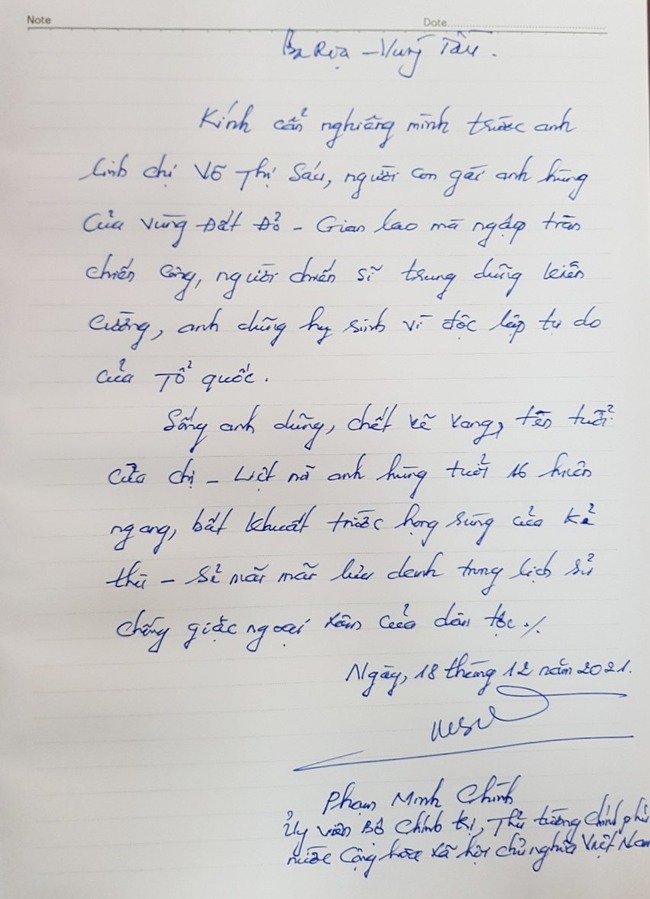 Note
Date
Bà Rịa - Vũng Tàu.
Kính cẩn nghiêng mình trước anh
linh chị Võ Thị Sáu, người con gái anh hùng
của vùng Đất Đỏ - Gian lao mà ngập tràn
chiến công, người chiến sĩ trung dũng kiên
cường, anh dũng hy sinh vì độc lập tự do
của Tổ quốc.
Sống anh dũng, chết vẻ vang, tên tuổi
của chị - Liệt nữ anh hùng tuổi 16 hiên
ngang, bất khuất trước họng súng của kẻ
thù - sẽ mãi mãi lưu danh trong lịch sử
chống giặc ngoại xâm của dân tộc ./.
Ngày, 18 tháng 12 năm 2021.
Phạm Minh Chính
Ủy viên Bộ Chính trị, Thủ tướng Chính phủ
nước Cộng hòa xã hội chủ nghĩa Việt Nam